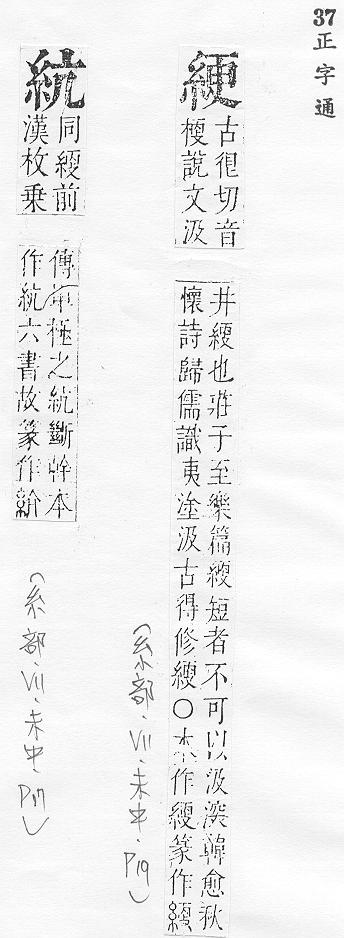 37 正字通
綆
古很切音
梗說文汲
井綆也莊子至樂篇綆短者不可以汲深韓愈秋
懷詩歸儒識夷塗汲古得修綆○本作綆篆作綆
(糸部·VII·未中·P19)
統
同綆前
漢枚乘
傳單極之統斷幹本
作統六書故篆作
(糸部·VII·未中·P17)